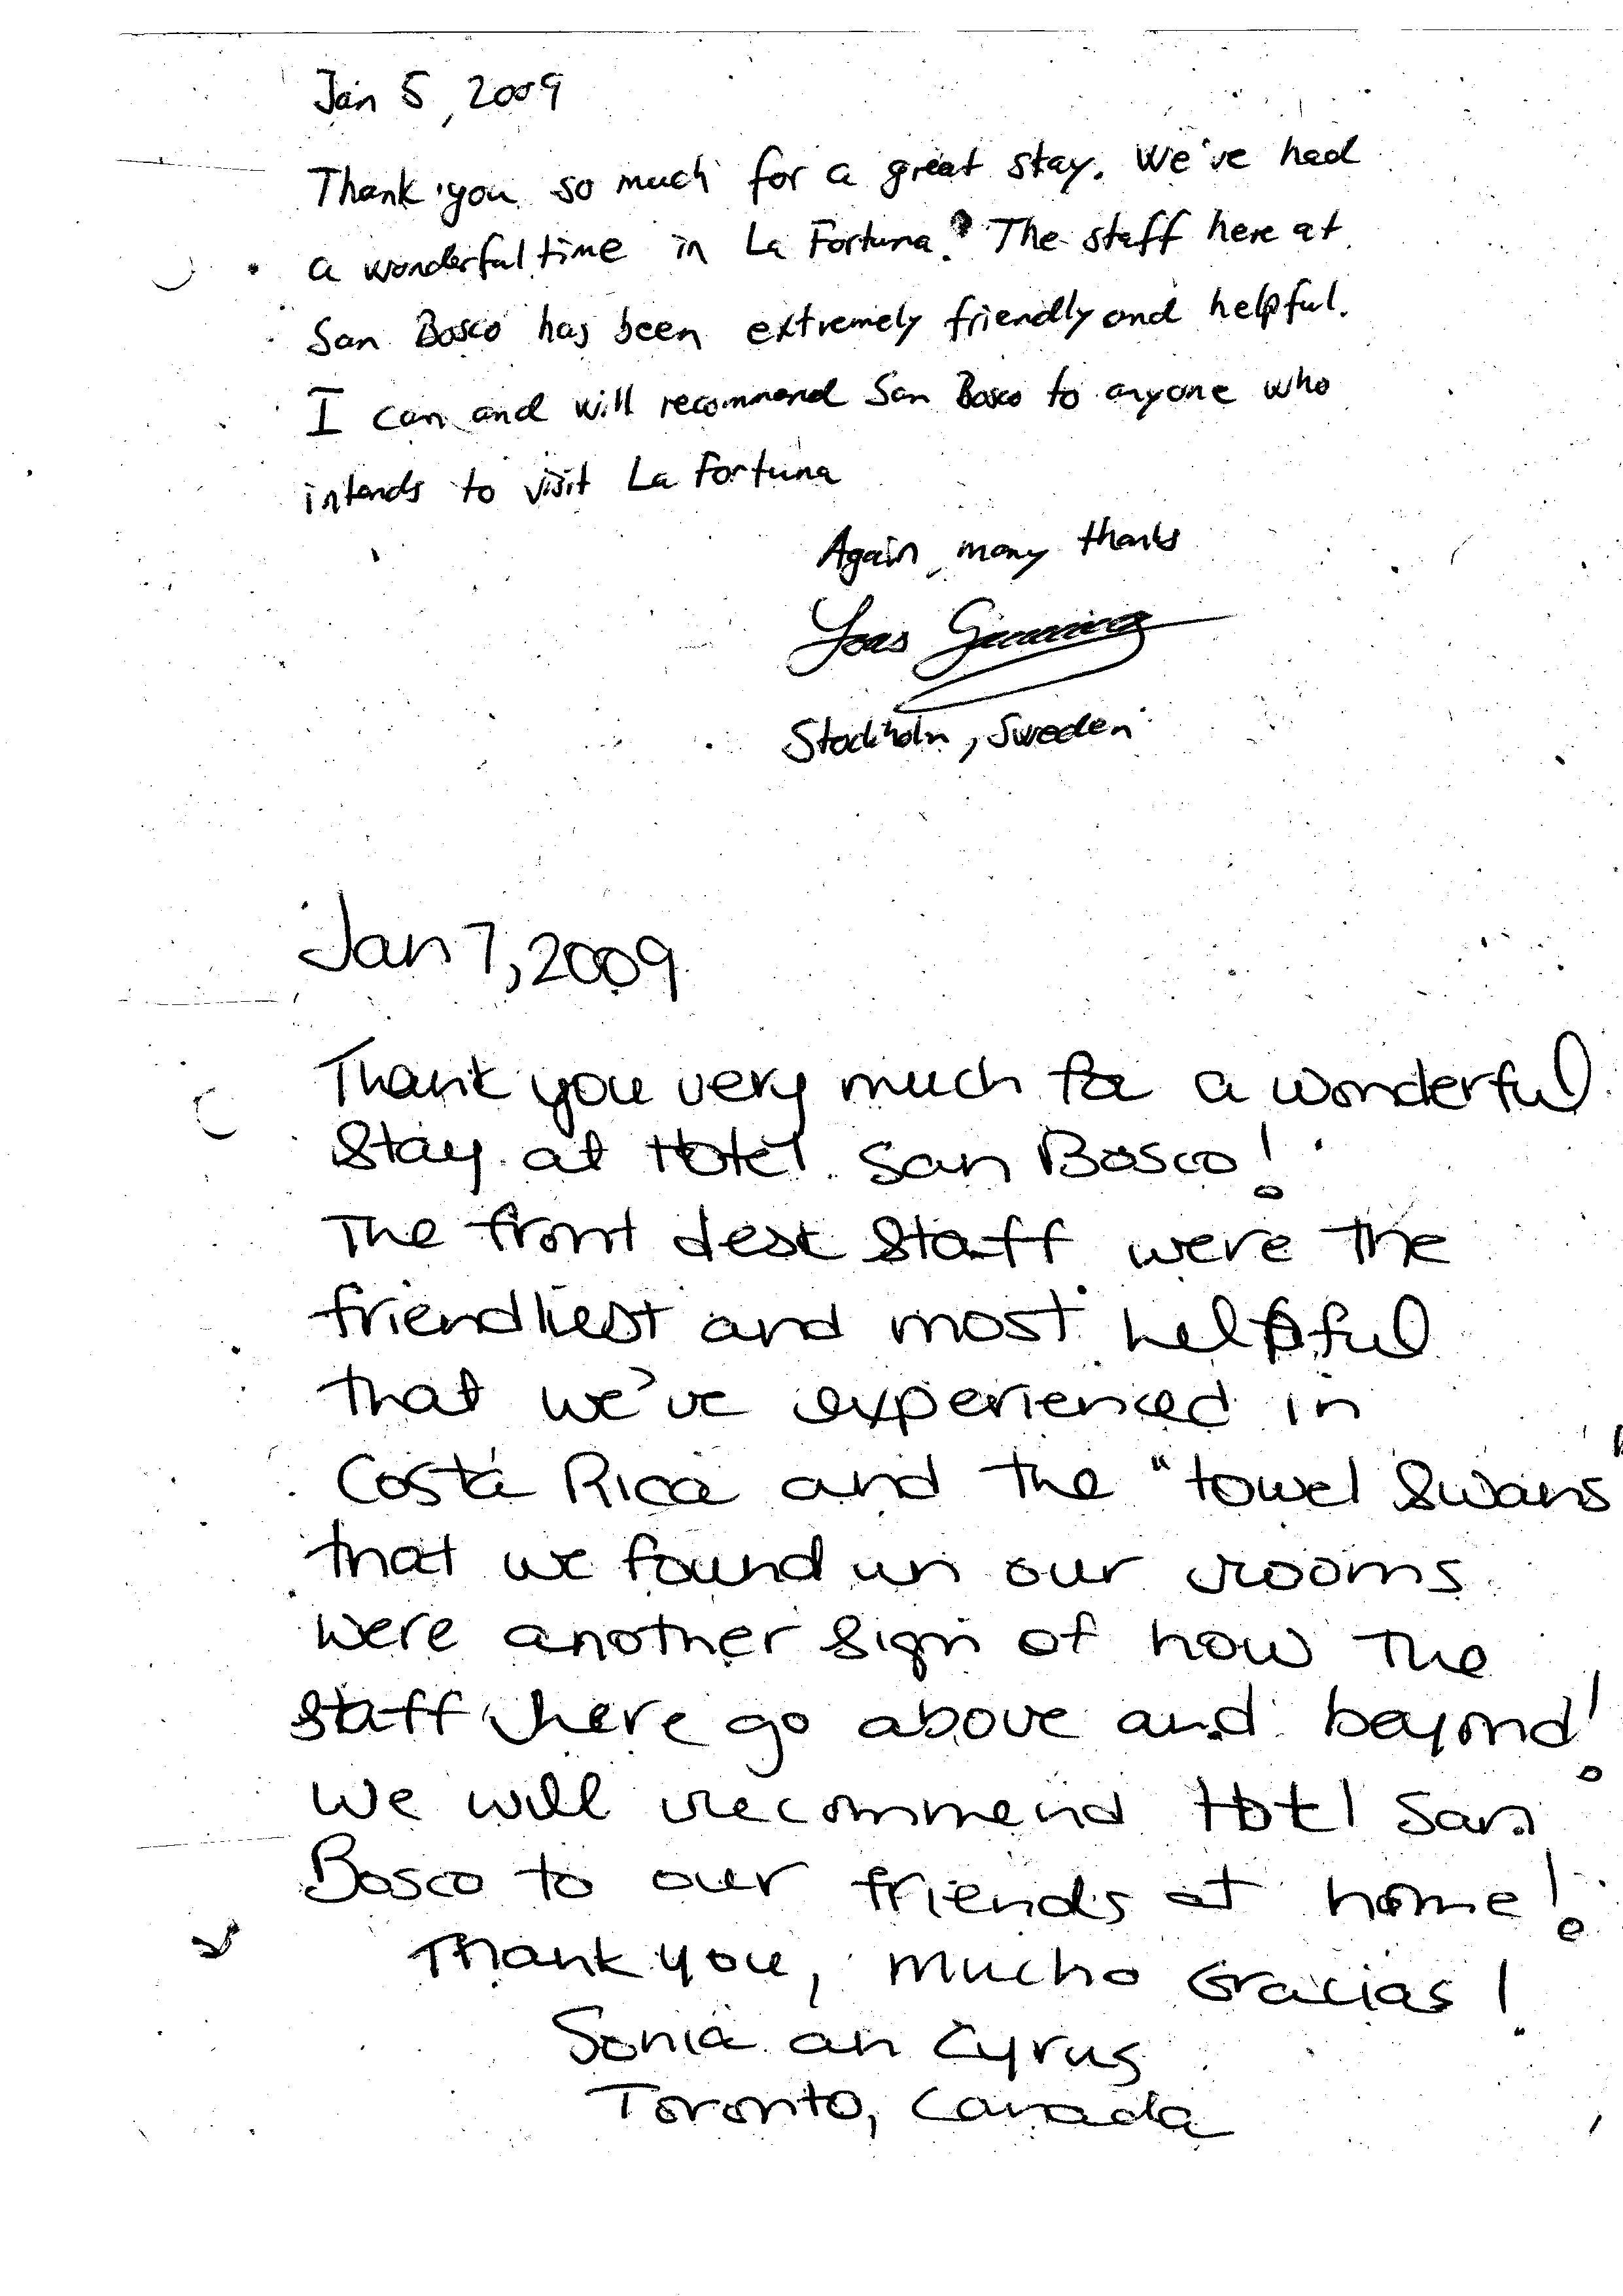 Jan 5, 2009
Thank you so much for a great stay. We've had
a wonderful time in La Fortuna. The staff here at
San Bosco has been extremely friendly and helpful.
I can and will recommend San Bosco to anyone who
intends to visit La Fortuna
Again, many thanks
Stockholm, Sweden
Jan 7, 2009
Thank you very much for a wonderful
stay at Hotel San Bosco!
The front desk staff were the
friendliest and most helpful
that we've experienced in
Costa Rica and the "towel swans"
that we found in our rooms
were another sign of how the
staff here go above and beyond!
We will recommend Hotel San
Bosco to our friends at home!
Thank you, Mucho Gracias!
Sonia an Cyrus
Toronto, Canada